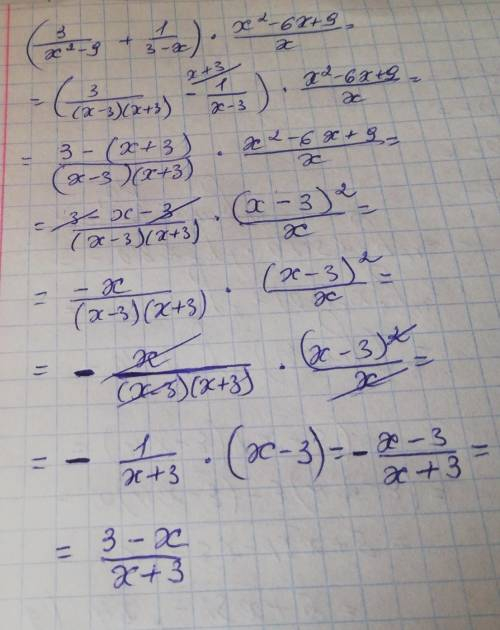 (3/(x²-9) + 1/(3-x)) · (x²-6x+9)/x =
= (3/((x-3)(x+3)) - x+3/ 1/(x-3)) · (x²-6x+9)/x =
= (3-(x+3))/((x-3)(x+3)) · (x²-6x+9)/x =
= (3-x-3)/((x-3)(x+3)) · (x-3)²/x =
= -x/((x-3)(x+3)) · (x-3)²/x =
= - x/((x-3)(x+3)) · (x-3)²/x =
= - 1/(x+3) · (x-3) = - (x-3)/(x+3) =
= (3-x)/(x+3)